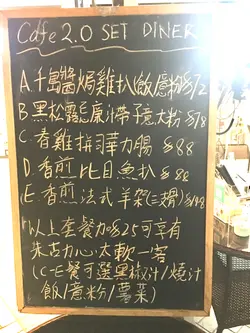 Cafe 2.0 SET DINER
A.千島醬焗雞扒飯/意粉$72
B.黑松露忌廉汁帶子意大粉$78
C.春雞拼彐華力腸$88
D.香煎比目魚扒$88
E.香煎法式羊架(三骨)$
以上套餐加$25可享有
朱古力心太軟一客
(C-E餐可選黑椒汁/燒汁
飯/意粉/薯菜)